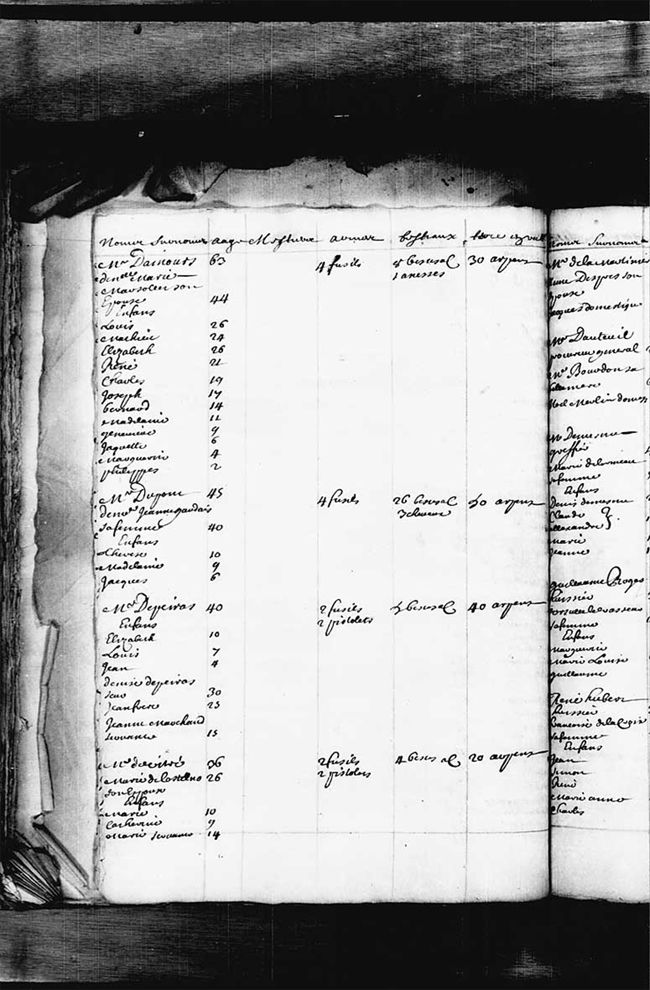 Noms Surnoms aage Mestiers armes bestiaux
Mr Damours 63 4 fusils besteal 30 arpens
denelle Marie
Marsolet son
Epouse 44
Enfans
Louis 26
Mathieu 24
Elizabeth 26
René 21
Charles 19
Joseph 17
bernard 14
Madelaine 11
genevieve 9
Jaquette 6
Marguerite 4
philippes 2
Mr Dupont 45 4 fusils 26 besteal arpens
Jeanne gaudais
sa femme 40
Enfans
Therese 10
Madelaine 9
Jacques 6
Mr Depeiras 40 2 fusils besteal 40 arpens
Enfans 2 pistolets
Elizabeth 10
Louis 7
Jean 4
denise depeiras
seur 30
Jean frere 25
Jeanne Marchand
servante 15
Mr de vitré 36 2 fusils 4 besteal 20 arpens
Marie de 26 2 pistolets
son Epouse
Enfans
Marie 10
Catherine 9
Marie servante 14
Noms Surnoms
Mr de la Martiniere
Anne Despres son
Epouse
Jacques domestique
Mr Dauteuil
procureur general
Mr Bourdon sa
Merlin domes
Mr Demesnu
greffier
Marie
sa femme
Enfans
Denis demesnu
Claude
allexandre
Marie
Jeanne
guillaume Roger
huissier
Ursulle levasseur
sa femme
Enfans
Marguerite
Marie Louise
guillaume
René hubert
huissier
francoise de la Croix
sa femme
Enfans
Jean
Simon
René
Marie anne
Charles